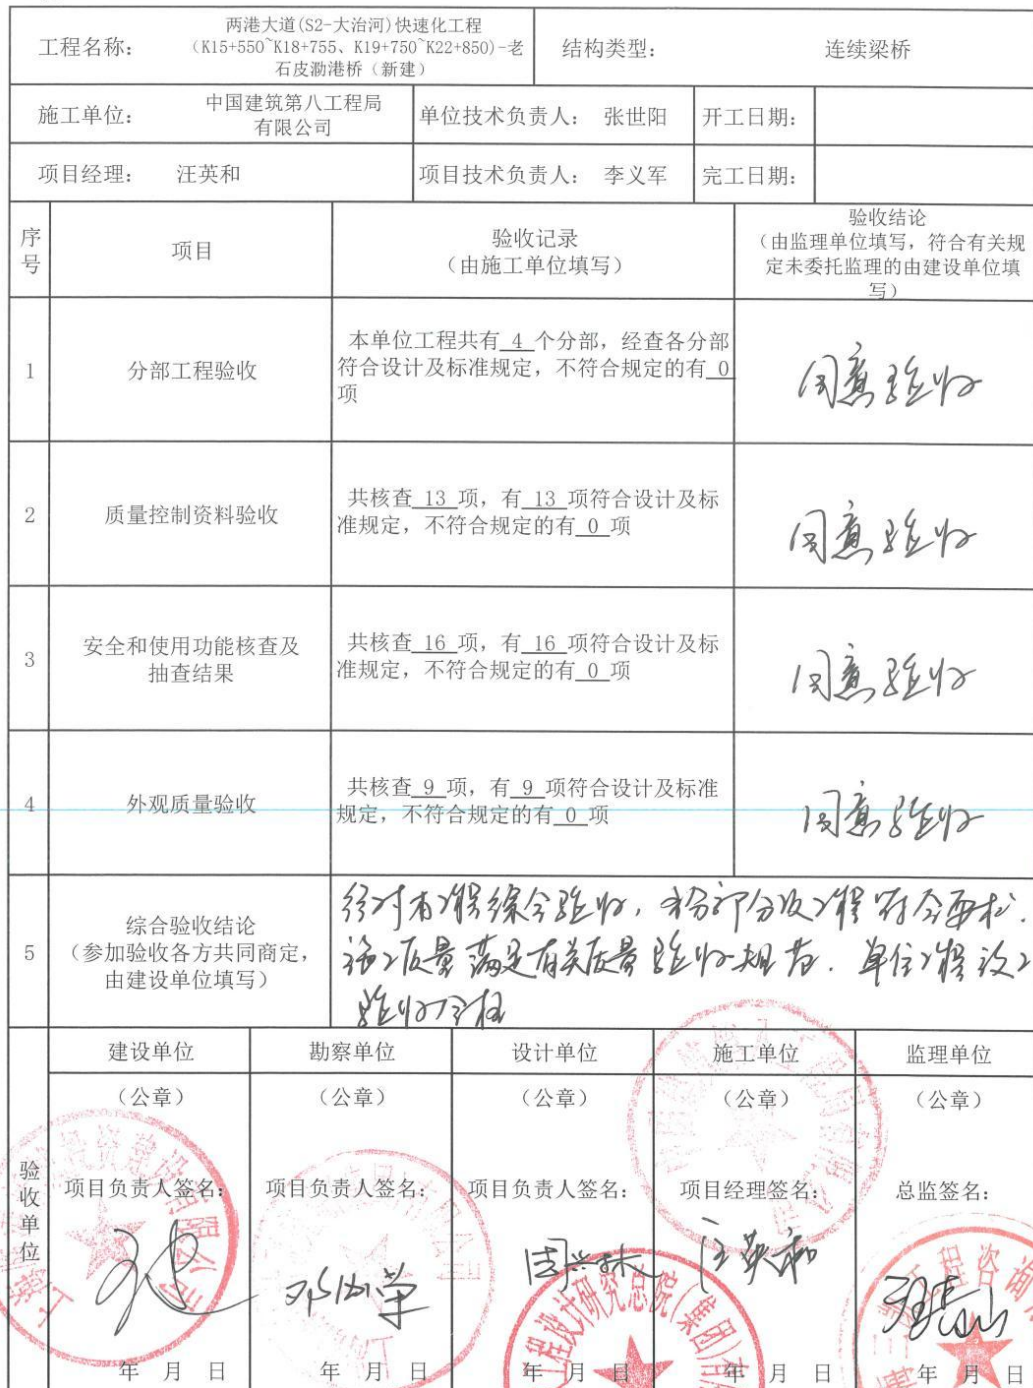 工程名称:
两港大道(S2-大治河)快速化工程
(K15+550~K18+755、K19+750~K22+850)-老
石皮泐港桥(新建)
结构类型:
连续梁桥
施工单位:
中国建筑第八工程局
有限公司
单位技术负责人: 张世阳
开工日期:
项目经理: 汪英和
项目技术负责人: 李义军
完工日期:
序
号
项目
验收记录
(由施工单位填写)
验收结论
(由监理单位填写,符合有关规
定未委托监理的由建设单位填
写)
1
分部工程验收
本单位工程共有 4 个分部,经查各分部
符合设计及标准规定,不符合规定的有 0
项
同意验收
2
质量控制资料验收
共核查 13 项,有 13 项符合设计及标
准规定,不符合规定的有 0 项
同意验收
3
安全和使用功能核查及
抽查结果
共核查 16 项,有 16 项符合设计及标
准规定,不符合规定的有 0 项
同意验收
4
外观质量验收
共核查 9 项,有 9 项符合设计及标准
规定,不符合规定的有 0 项
同意验收
5
综合验收结论
(参加验收各方共同商定,
由建设单位填写)
经对本工程综合验收,各分部分项工程符合要求.
施工质量满足有关质量验收规范.单位工程
验收合格
验
收
单
位
建设单位
勘察单位
设计单位
施工单位
监理单位
(公章)
(公章)
(公章)
(公章)
(公章)
项目负责人签名:
项目负责人签名:
项目负责人签名:
项目经理签名:
总监签名:
汪英和
投资建设有限公司
工程设计研究总院(集团)有
工程咨询
年 月 日
年 月 日
年 月 日
年 月 日
年 月 日